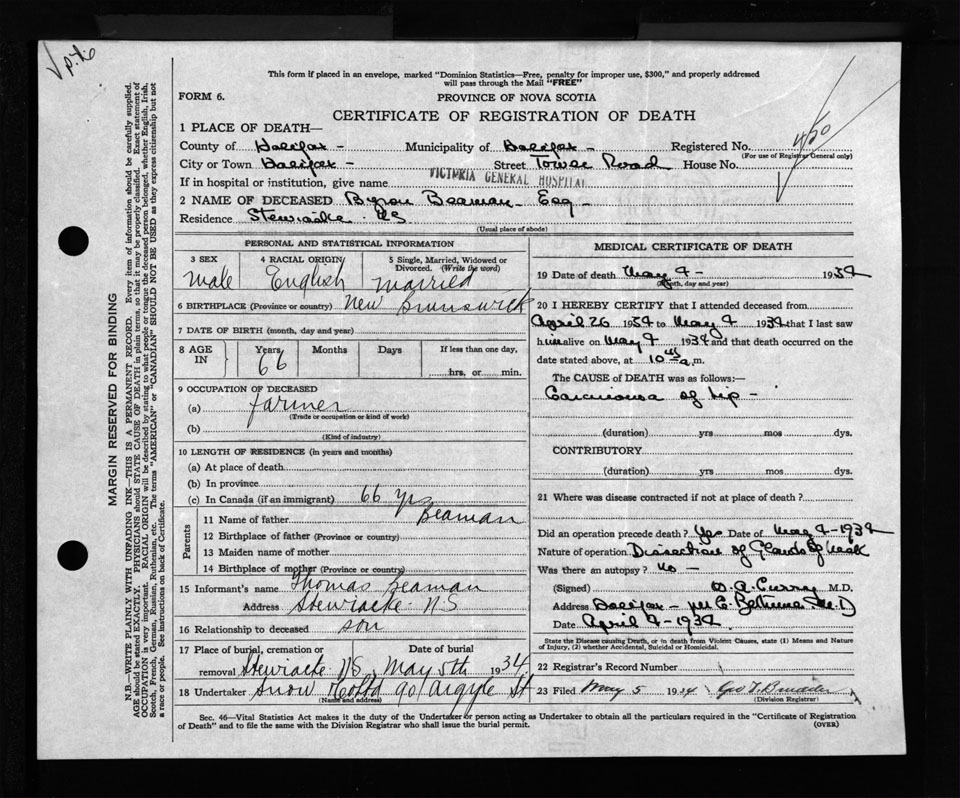 This form if placed in an envelope, marked "Dominion Statistics—Free, penalty for improper use, $300," and properly addressed
will pass through the Mail "FREE"
FORM 6.
PROVINCE OF NOVA SCOTIA
CERTIFICATE OF REGISTRATION OF DEATH
1 PLACE OF DEATH—
County of Halifax - Municipality of Halifax - Registered No.
(For use of Registrar General only)
City or Town Halifax - Street Tower Road House No.
If in hospital or institution, give name VICTORIA GENERAL HOSPITAL
2 NAME OF DECEASED Byron Beaman Esq -
Residence Stewiacke NS
(Usual place of abode)
MARGIN RESERVED FOR BINDING
N.B.—WRITE PLAINLY WITH UNFADING INK—THIS IS A PERMANENT RECORD. Every item of information should be carefully supplied.
AGE should be stated EXACTLY. PHYSICIANS should STATE CAUSE OF DEATH in plain terms, so that it may be properly classified. Exact statement of
OCCUPATION is very important. RACIAL ORIGIN will be described by stating to what people or tongue the deceased person belonged, whether English, Irish,
Scotch, French, German, Russian, Ruthenian, etc. The terms "AMERICAN" or "CANADIAN" SHOULD NOT BE USED as they express citizenship but not
a race or people. See instructions on back of Certificate.
PERSONAL AND STATISTICAL INFORMATION
3 SEX
Male
4 RACIAL ORIGIN
English
5 Single, Married, Widowed or
Divorced. (Write the word)
Married
6 BIRTHPLACE (Province or country) New Brunswick
7 DATE OF BIRTH (month, day and year)
8 AGE IN
Years Months Days If less than one day,
66
hrs. or min.
9 OCCUPATION OF DECEASED
(a) farmer
(Trade or occupation or kind of work)
(b)
(Kind of industry)
10 LENGTH OF RESIDENCE (in years and months)
(a) At place of death
(b) In province
(c) In Canada (if an immigrant) 66 yr
Parents
11 Name of father Beaman
12 Birthplace of father (Province or country)
13 Maiden name of mother
14 Birthplace of mother (Province or country)
15 Informant's name Thomas Beaman
Address Stewiacke N.S
16 Relationship to deceased son
17 Place of burial, cremation or Date of burial
removal Stewiacke NS, May 5th 1934
18 Undertaker Snow & Co Ltd 90 Argyle St
(Name and address)
MEDICAL CERTIFICATE OF DEATH
19 Date of death May 4 - 1934
(Month, day and year)
20 I HEREBY CERTIFY that I attended deceased from
April 26 1934 to May 4 1934 that I last saw
him alive on May 4 1934 and that death occurred on the
date stated above, at 10 a.m.
The CAUSE of DEATH was as follows:—
Carcinoma of lip -
(duration) yrs mos dys.
CONTRIBUTORY
(duration) yrs mos dys.
21 Where was disease contracted if not at place of death?
Did an operation precede death? Yes Date of May 4 - 1934
Nature of operation Dissection of Glands of neck
Was there an autopsy? No -
(Signed) Curry M.D.
Address Halifax - per C. Bethune M.D
Date April 4 - 1934
State the Disease causing Death, or in death from Violent Causes, state (1) Means and Nature
of Injury, (2) whether Accidental, Suicidal or Homicidal.
22 Registrar's Record Number
23 Filed May 5 1934 Geo T.
(Division Registrar)
Sec. 46—Vital Statistics Act makes it the duty of the Undertaker or person acting as Undertaker to obtain all the particulars required in the "Certificate of Registration
of Death" and to file the same with the Division Registrar who shall issue the burial permit. (OVER)